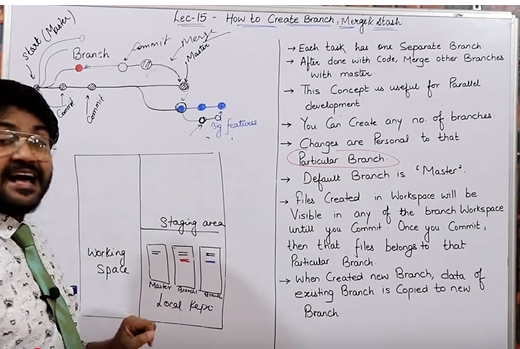 Lec-15 - How to Create Branch, Merge & Stash
Start (Master)
Branch
Commit
Merge
Master
Commit
Commit
Big features
Staging area
Working
Space
Master
Branch
Branch
Local Repo
→ Each task has one Separate Branch
→ After done with Code, Merge other Branches
with master
→ This Concept is useful for Parallel
development
→ You Can Create any no. of branches
→ Changes are Personal to that
Particular Branch
→ Default Branch is 'Master'.
→ Files Created in Workspace will be
Visible in any of the branch Workspace
untill you Commit. Once you Commit,
then that files belongs to that
Particular Branch.
→ When Created new Branch, data of
existing Branch is Copied to new
Branch